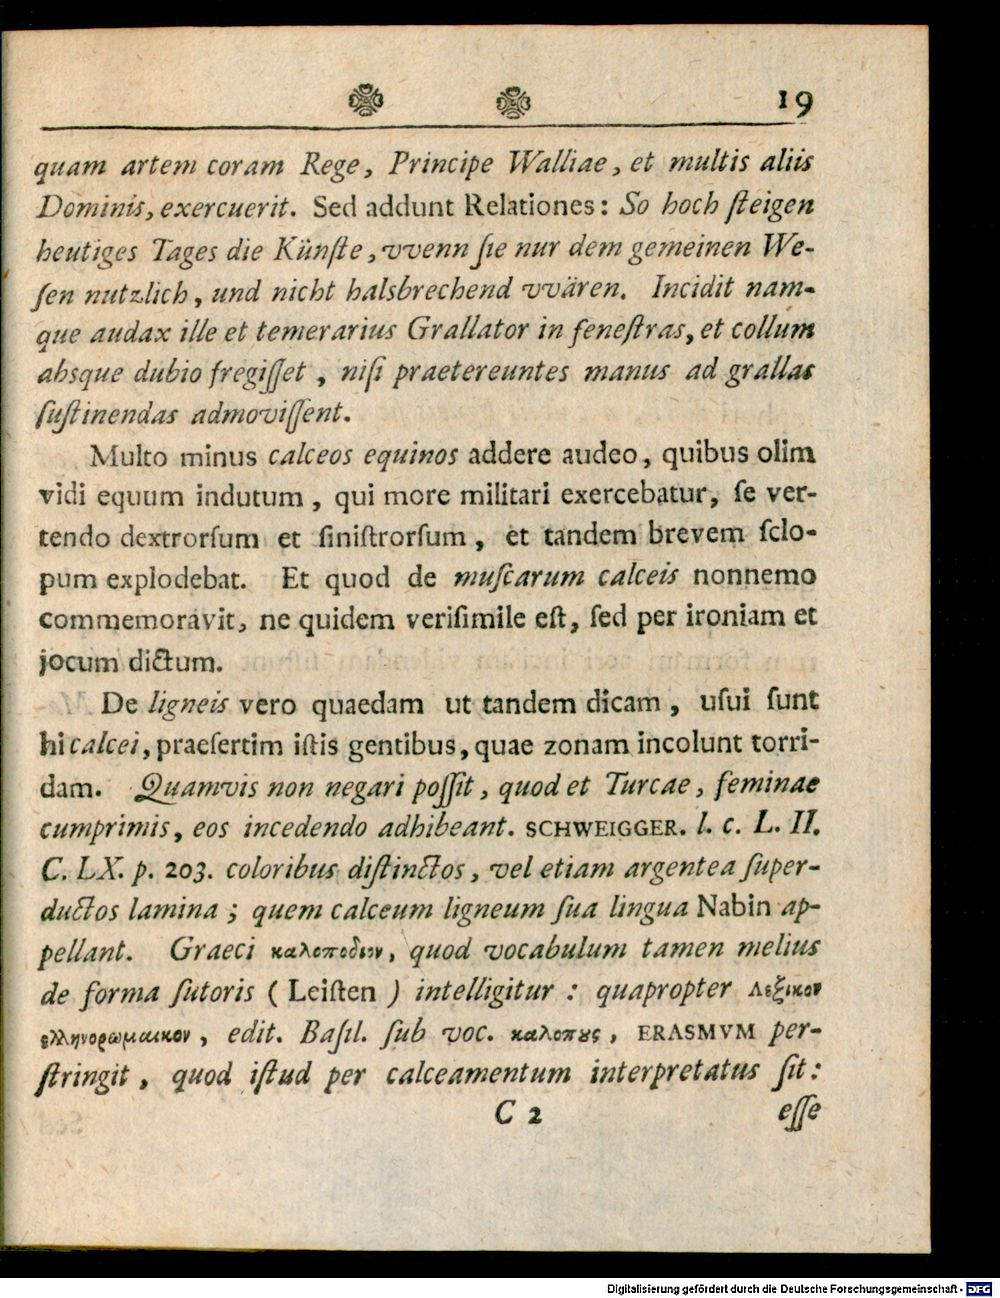 19
quam artem coram Rege, Principe Walliae, et multis aliis
Dominis, exercuerit. Sed addunt Relationes: So hoch ſteigen
heutiges Tages die Künſte, vvenn ſie nur dem gemeinen We-
ſen nutzlich, und nicht halsbrechend vvären. Incidit nam-
que audax ille et temerarius Grallator in feneſtras, et collum
absque dubio fregiſſet, niſi praetereuntes manus ad grallas
ſuſtinendas admoviſſent.
Multo minus calceos equinos addere audeo, quibus olim
vidi equum indutum, qui more militari exercebatur, ſe ver-
tendo dextrorſum et ſiniſtrorſum, et tandem brevem ſclo-
pum explodebat. Et quod de muſcarum calceis nonnemo
commemoravit, ne quidem veriſimile eſt, ſed per ironiam et
jocum dictum.
De ligneis vero quaedam ut tandem dicam, uſui ſunt
hi calcei, praeſertim iſtis gentibus, quae zonam incolunt torri-
dam. Quamvis non negari poſſit, quod et Turcae, feminae
cumprimis, eos incedendo adhibeant. SCHWEIGGER. l. c. L. II.
C. LX. p. 203. coloribus diſtinctos, vel etiam argentea ſuper-
ductos lamina; quem calceum ligneum ſua lingua Nabin ap-
pellant. Graeci καλοποδιον, quod vocabulum tamen melius
de forma ſutoris (Leiſten) intelligitur: quapropter Λεξικον
ελληνορωμαικον, edit. Baſil. ſub voc. καλοπȣς, ERASMVM per-
ſtringit, quod iſtud per calceamentum interpretatus ſit:
C 2 eſſe
Digitalisierung gefördert durch die Deutsche Forschungsgemeinschaft - DFG